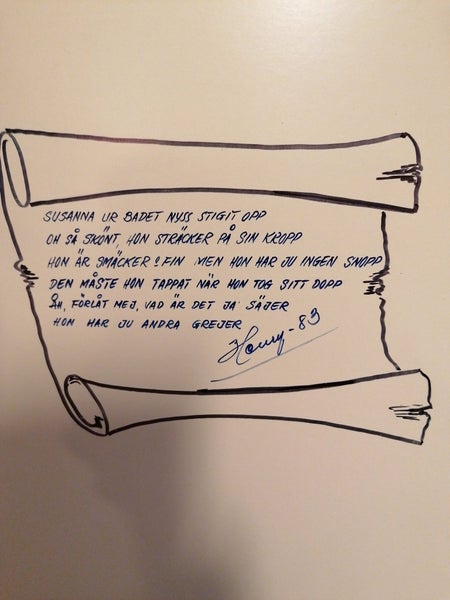 SUSANNA UR BADET NYSS STIGIT OPP
OH SÅ SKÖNT, HON STRÄCKER PÅ SIN KROPP
HON ÄR SMÄCKER & FIN MEN HON HAR JU INGEN SNOPP
DEN MÅSTE HON TAPPAT NÄR HON TOG SITT DOPP
ÅH, FÖRLÅT MEJ, VAD ÄR DET JA' SÄJER
HON HAR JU ANDRA GREJER
-83